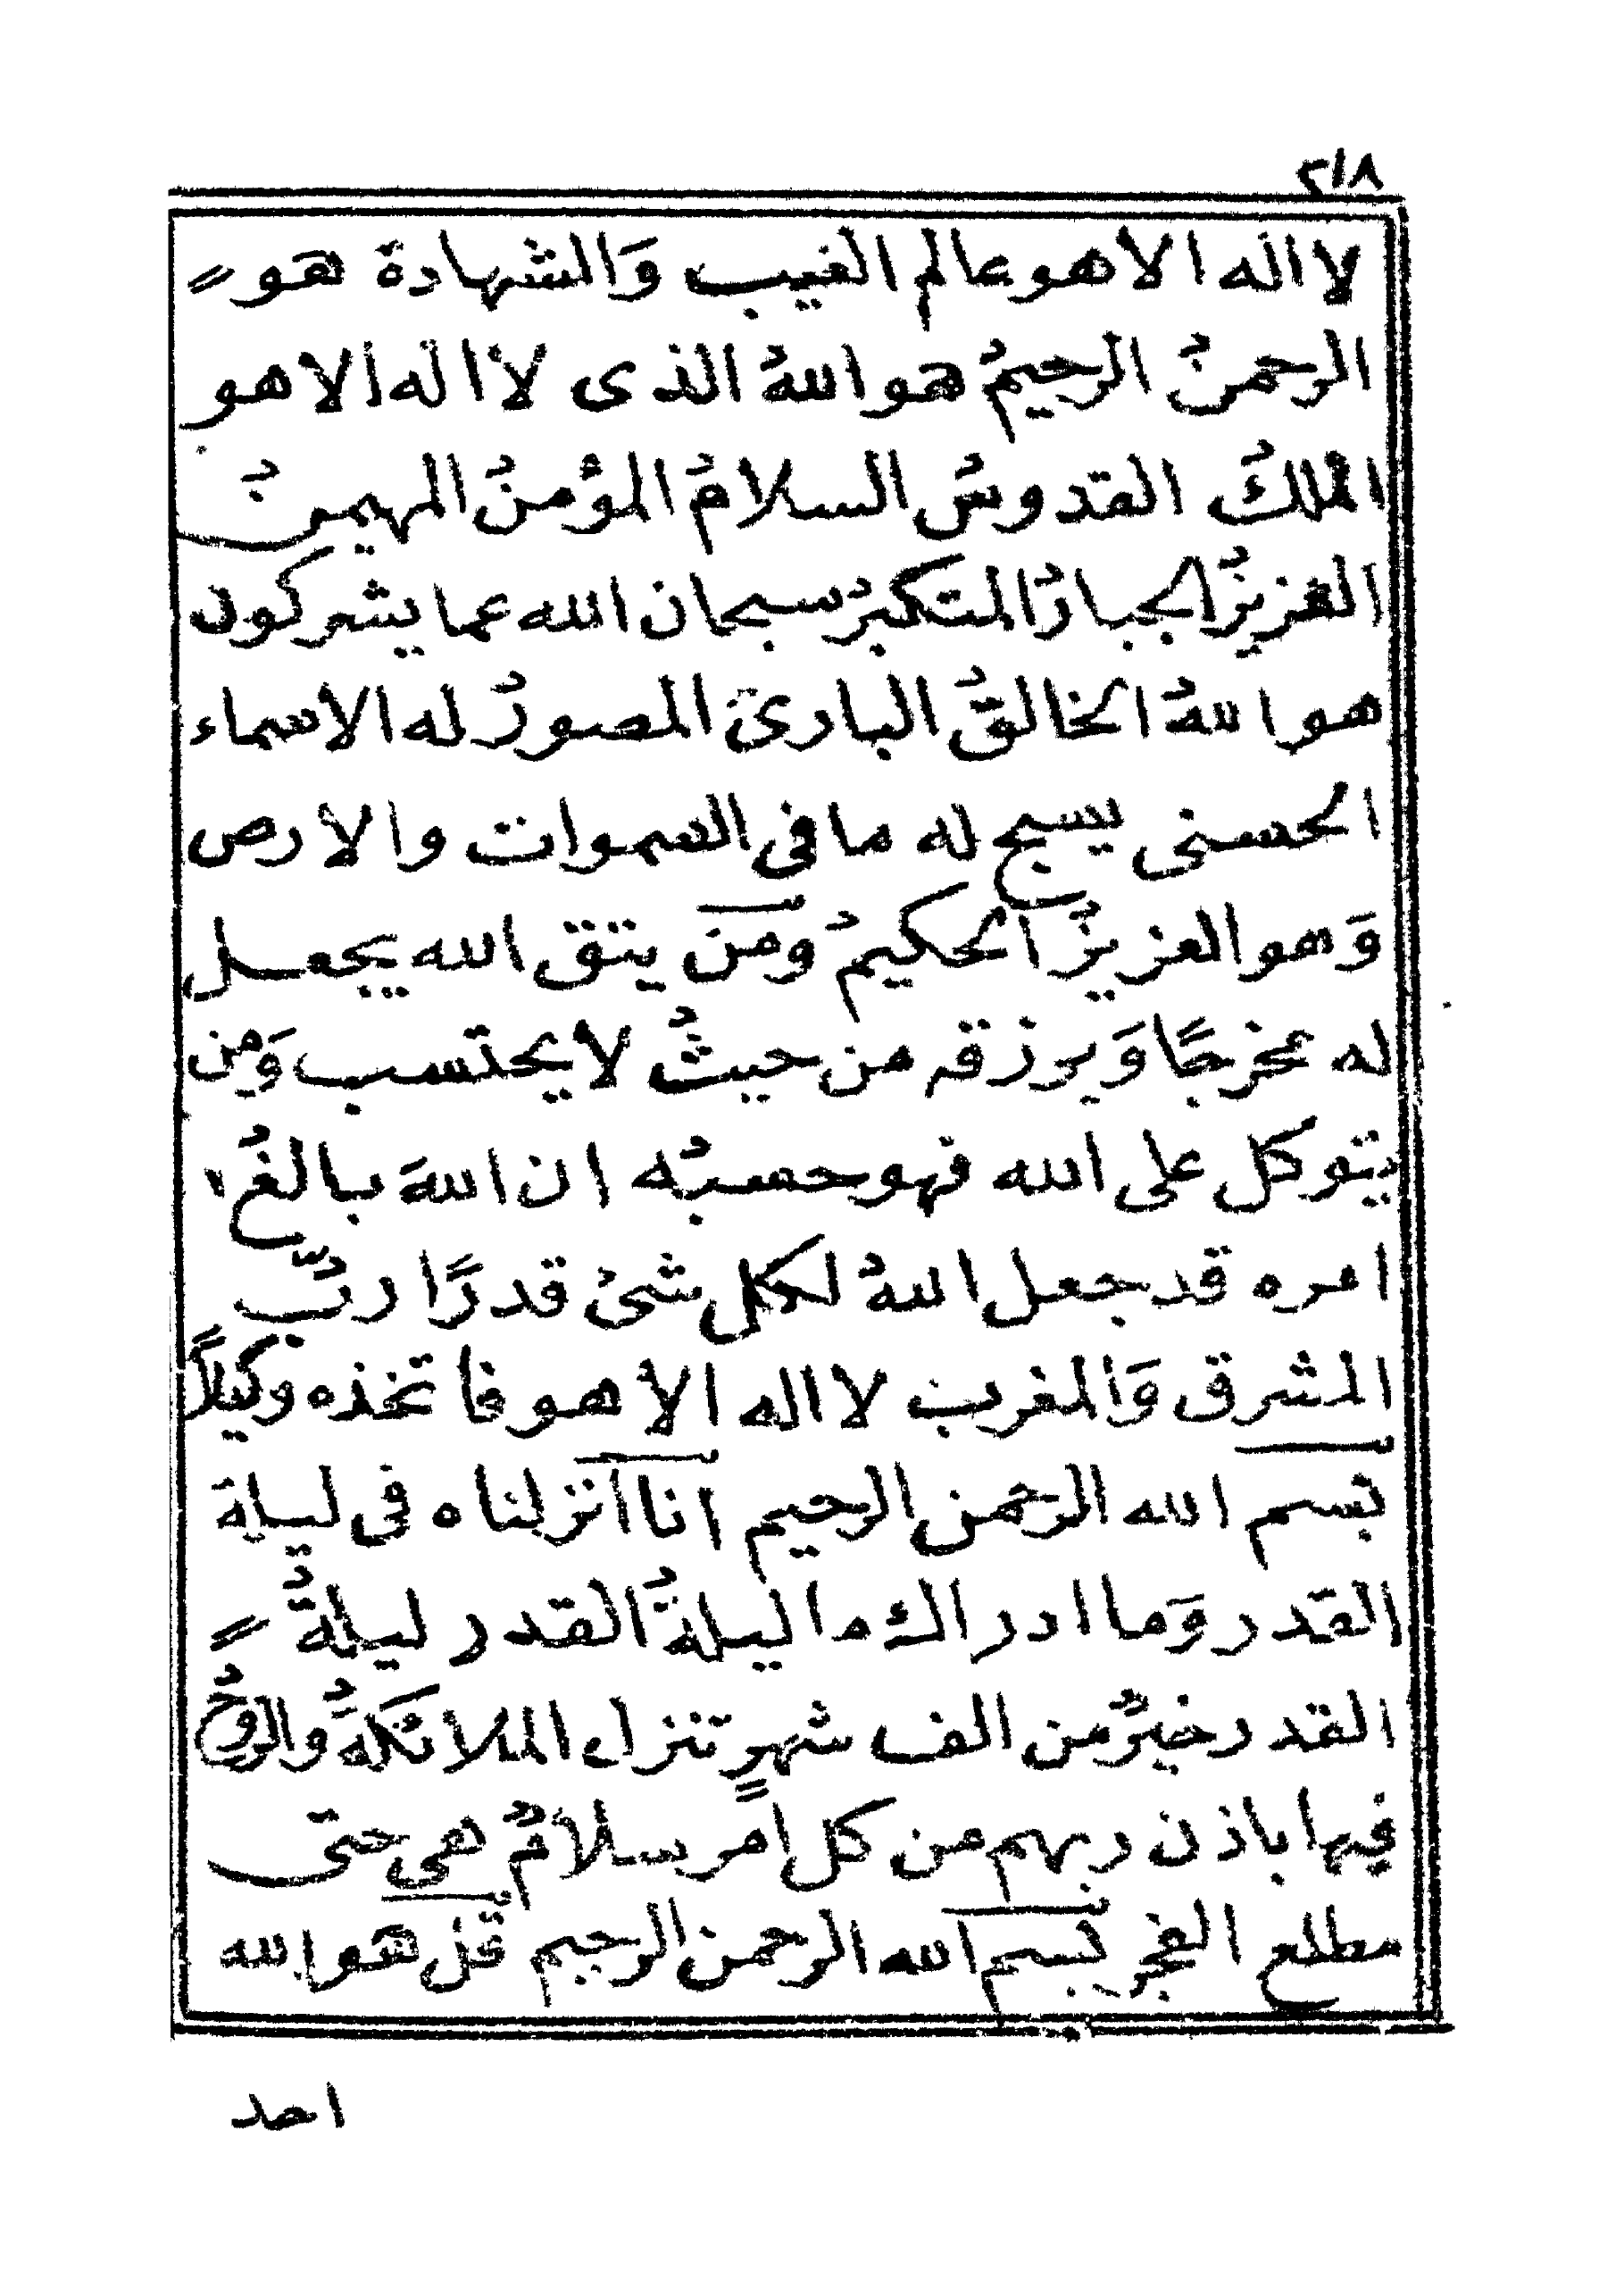 ٢١٨
لا اله الا هو عالم الغيب وَالشهادة هو
الرحمنُ الرحيمُ هو اللهُ الذى لا اله الا هو
الملكُ القدوسُ السلامُ المؤمنُ المهيمنُ
العزيزُ الجبارُ المتكبرُ سبحان الله عما يشركون
هو اللهُ الخالقُ البارئ المصورُ له الاسماء
الحسنى يسبح له ما فى السموات والارض
وَهو العزيزُ الحكيمُ ومَن يتق الله يجعل
له مخرجًا وَيرزقه من حيثُ لا يحتسب وَمن
يتوكل على الله فهو حسبُه ان اللهَ بالغُ
امره قد جعل اللهُ لكل شئ قدرًا ربُّ
المشرق وَالمغرب لا اله الا هو فاتخذه وكيلاً
بسم الله الرحمن الرحيم انا انزلناه فى ليلة
القدر وَما ادراك ما ليلةُ القدر ليلةُ
القدر خيرٌ من الف شهرٍ تنزل الملائكةُ والروحُ
فيها باذن ربهم من كل امر سلامٌ هى حتى
مطلع الفجر بسم الله الرحمن الرحيم قل هو الله
احد